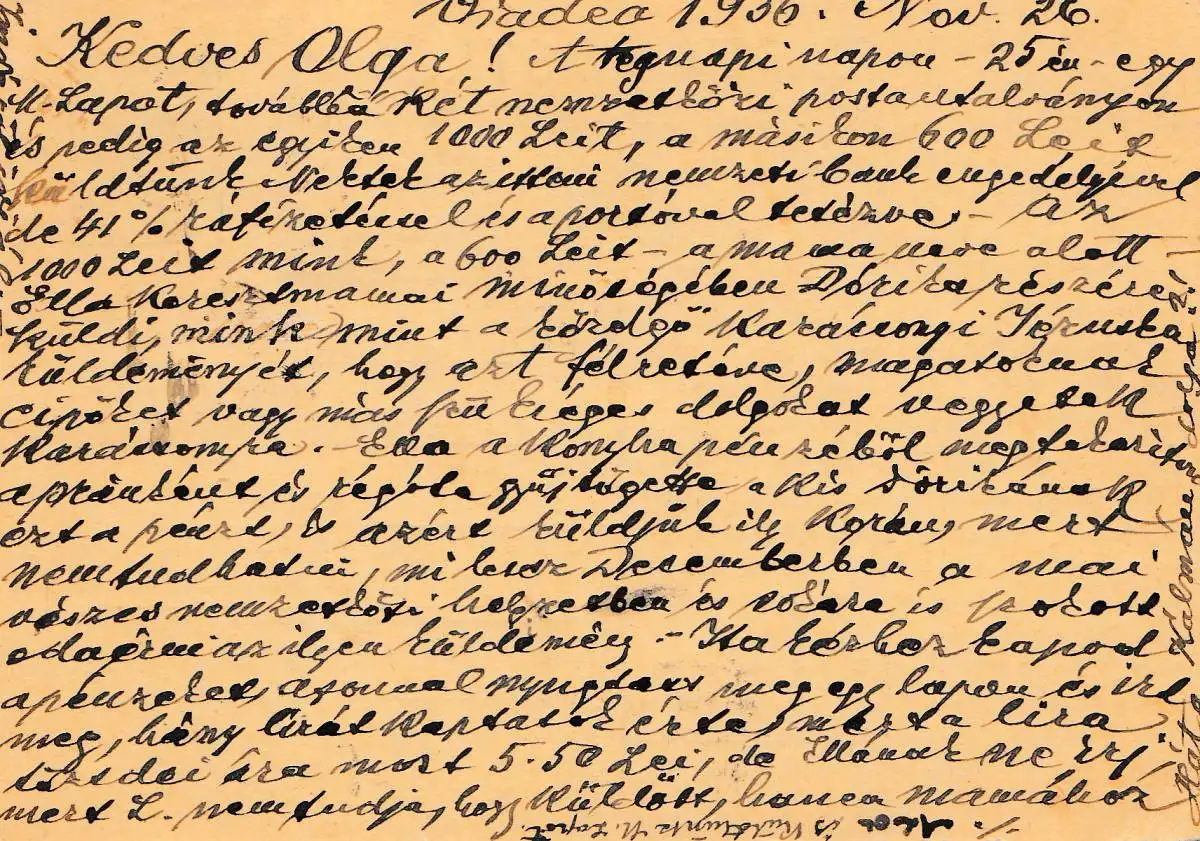 1936. Nov. 26.
Kedves Olga! A tegnapi napon – 25 én – egy
K-Lapot, továbbá két nemzetközi postautalványon
és pedig az egyiken 1000 Leit, a másikon 600 Leit
küldtünk Nektek az itteni nemzeti bank engedélyével
de 41% ráfizetéssel és a portóval tetézve, – Az
1000 Leit mink, a 600 Leit – a mama neve alatt –
Ella Keresztmamai minőségében Dórika részére
küldi, mink mint a közelgő Karácsonyi Jézuska
küldeményét, hogy azt félretéve, magatoknak
cipőket vagy más szükséges dolgokat vegyetek
Karácsonyra. – Ella a Konyha pénzéből megtakarítva
apránként és régóta gyűjtögette a Kis Dórikának
ezt a pénzt, és azért küldjük ily korán, mert
nem tudhatni, mi lesz Desemberben a mai
vészes nemzetközi helyzetben és sokára is szokott
odaérni az ilyen küldemény. – Ha kézhez kapod
a pénzeket, azonnal nyugtass meg egy lapon és írd
meg, hány lírát kaptatok érte, mert a líra
tőzsdei ára most 5.50 Lei, de Ellának ne írj
mert L. nem tudja, hogy küldött, hanem mamához
is küldtünk K. Lapot.
Kálmán